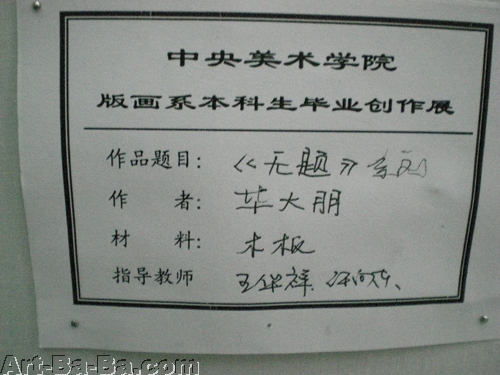 中央美术学院
版画系本科生毕业创作展
作品题目：《无题》系列
作 者：华大朋
材 料：木板
指导教师 王华祥、
Art-Ba-Ba.com